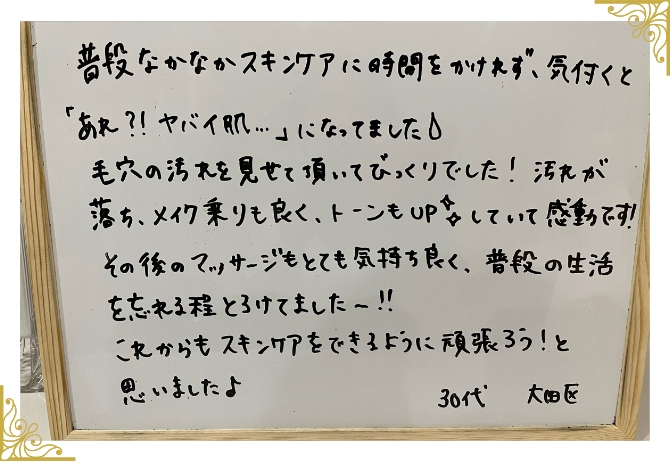 普段なかなかスキンケアに時間をかけれず、気付くと
「あれ?! ヤバイ肌…」になってました💧
毛穴の汚れを見せて頂いてびっくりでした! 汚れが
落ち、メイク乗りも良く、トーンもUP✨していて感動です!
その後のマッサージもとても気持ち良く、普段の生活
を忘れる程とろけてました〜!!
これからもスキンケアをできるように頑張ろう!と
思いました♪
30代 大田区